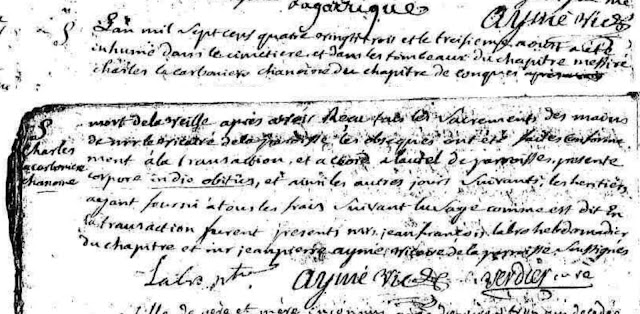 Lagarrigue
Aymé Vic.
S L'an mil sept cens quatre vingt trois et le treisieme aout a été
inhumé dans le cimetiere et dans les tombeaux du chapitre messire
charles lacarboniere chanoine du chapitre de conques
S mort de la veille après avoir reçu tous les sacrements des mains
Charles
lacarboniere
chanoine
de mr le vicaire de la paroisse, les obseques ont été faites conforme
ment à la transaction, et accord a l'autel de paroisse, presente
corpore in die obitus, et aussi les autres jours suivants, les heritiers
ayant fourni a tous les frais suivant l'usage comme est dit en
la transaction furent presents mrs jean françois labro hebdomadier
du chapitre et mr jean pierre aymé vicaire de la paroisse soussignés
Labro ptre aymé vic. verdier curé
fille de père et mère inconnus